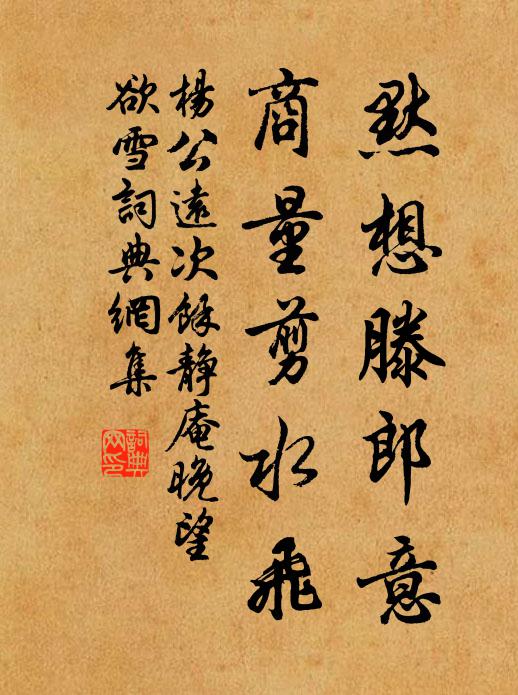 默想滕郎意
商量剪水飛
楊公遠次餘靜庵晚望
欲雪詞典網集
詞典網印